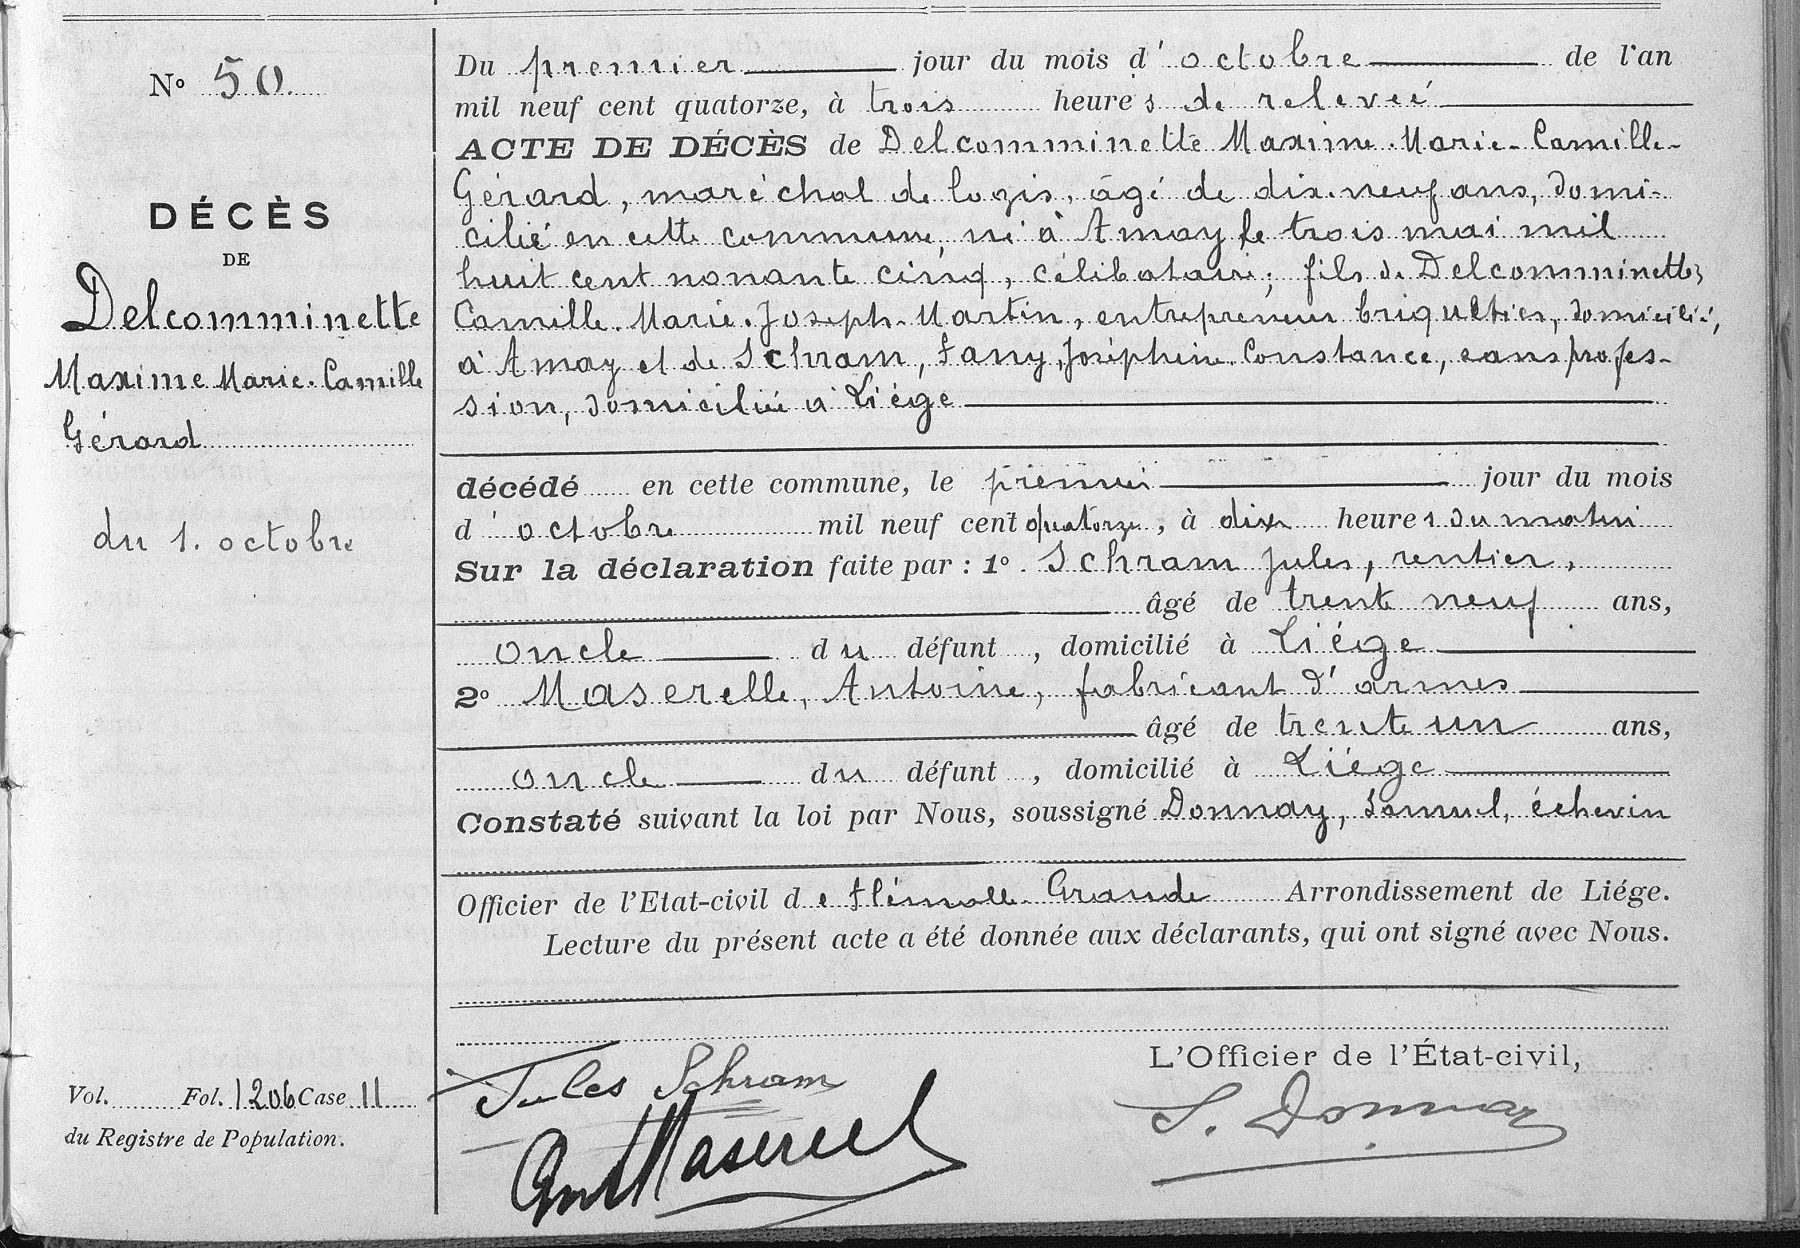 N° 50
DÉCÈS
DE
Delcomminette
Maxime Marie-Camille
Gérard
du 1. octobre
Vol. Fol. 1206 Case 11
du Registre de Population.
Du premier jour du mois d'octobre de l'an
mil neuf cent quatorze, à trois heures de relevée
ACTE DE DÉCÈS de Delcomminette Maxime-Marie-Camille-
Gérard, maréchal de logis, âgé de dix-neuf ans, domi-
cilié en cette commune, né à Amay le trois mai mil
huit cent nonante cinq, célibataire; fils de Delcomminette,
Camille-Marie-Joseph-Martin, entrepreneur briquetier, domicilié,
à Amay et de Schram, Fany, Joséphine Constance, sans profes-
sion, domiciliée à Liége
décédé en cette commune, le premier jour du mois
d'octobre mil neuf cent quatorze, à dix heures du matin
Sur la déclaration faite par : 1° Schram Jules, rentier,
âgé de trente neuf ans,
oncle du défunt, domicilié à Liége
2° Maserelle, Antoine, fabricant d'armes
âgé de trente un ans,
oncle du défunt, domicilié à Liége
Constaté suivant la loi par Nous, soussigné Donnay, Samuel, échevin
Officier de l'Etat-civil de Flémalle-Grande Arrondissement de Liége.
Lecture du présent acte a été donnée aux déclarants, qui ont signé avec Nous.
L'Officier de l'État-civil,
Jules Schram
S. Donnay
Ant Maserel